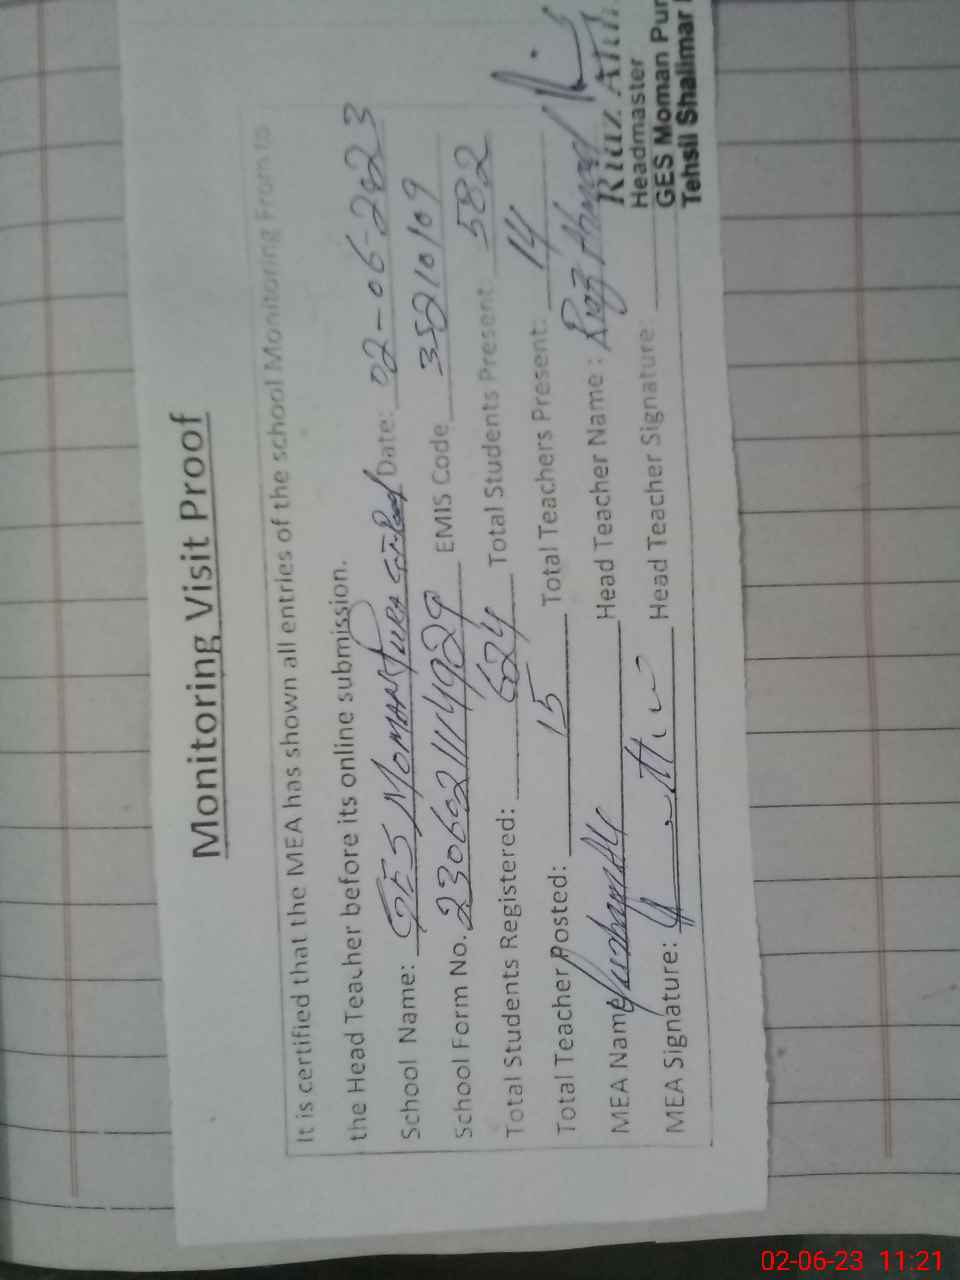 Monitoring Visit Proof
It is certified that the MEA has shown all entries of the school Monitoring From to
the Head Teacher before its online submission.
School Name: GES MOMANPURA Date: 02-06-2023
School Form No. 23060211114929 EMIS Code 35210109
Total Students Registered: 624 Total Students Present: 582
Total Teacher Posted: 15 Total Teachers Present: 14
MEA Name Head Teacher Name : Riaz Ahmad
MEA Signature: Head Teacher Signature:
Riaz
Headmaster
GES Moman Pur
Tehsil Shalimar
02-06-23 11:21